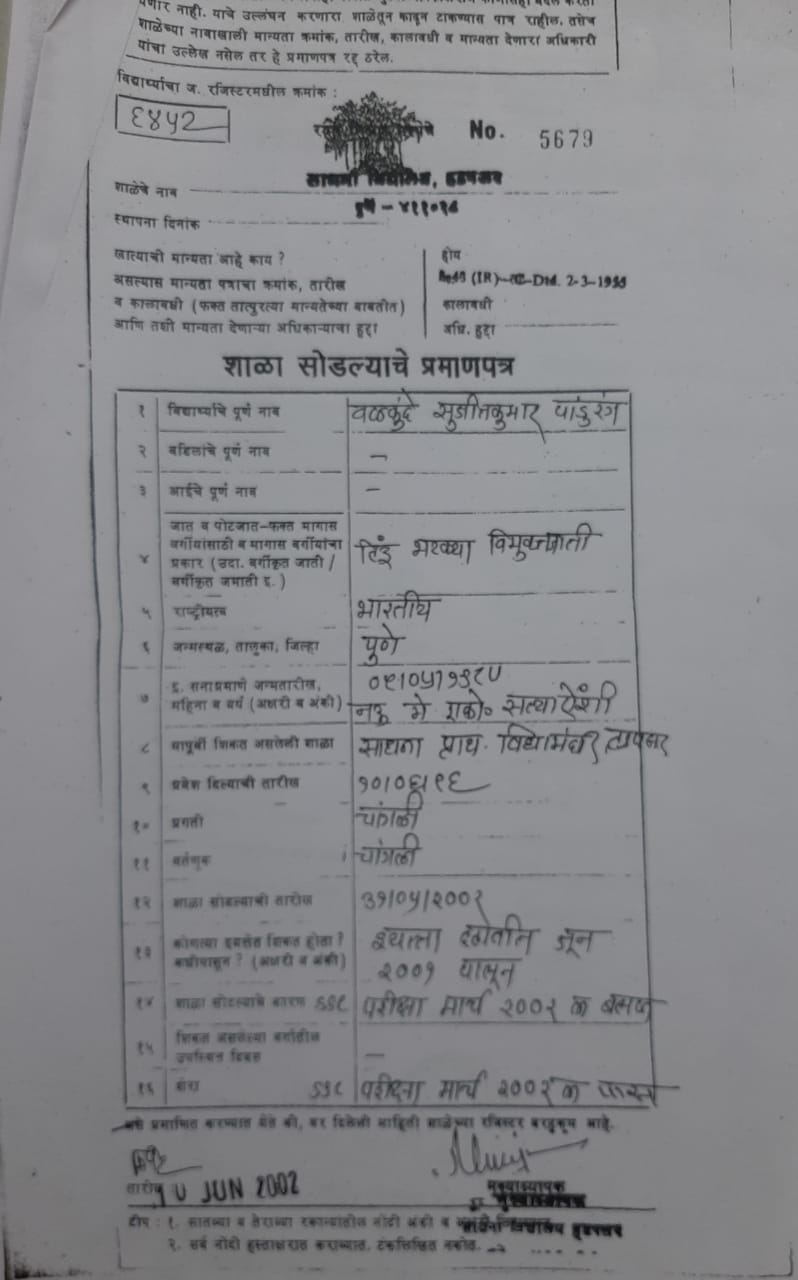 नाही. याचे उल्लंघन करणारा शाळेतून काढून टाकण्यास पात्र राहील. तसेच
शाळेच्या नावाखाली मान्यता क्रमांक, तारीख, कालावधी व मान्यता देणारा अधिकारी
यांचा उल्लेख नसेल तर हे प्रमाणपत्र रद्द ठरेल.
विद्यार्थ्याचा ज. रजिस्टरमधील क्रमांक :
६४५२
No. 5679
शाळेचे नाव
साधना विद्यालय, हडपसर
पुणे - ४११०२८
स्थापना दिनांक
खात्याची मान्यता आहे काय ?
होय
असल्यास मान्यता पत्राचा क्रमांक, तारीख
(IR) Dtd. 2-3-19
व कालावधी (फक्त तात्पुरत्या मान्यतेच्या बाबतीत)
कालावधी
आणि तशी मान्यता देणाऱ्या अधिकाऱ्याचा हुद्दा
अधि. हुद्दा
शाळा सोडल्याचे प्रमाणपत्र
१ विद्यार्थ्याचे पूर्ण नाव वळकुंदे सुजीतकुमार पांडुरंग
२ वडिलांचे पूर्ण नाव -
३ आईचे पूर्ण नाव -
जात व पोटजात-फक्त मागास
वर्गीयांसाठी व मागास वर्गीयांचा
४ प्रकार (उदा. वर्गीकृत जाती /
वर्गीकृत जमाती इ.)
हिंदू विमुक्तजाती
५ राष्ट्रीयत्व भारतीय
६ जन्मस्थळ, तालुका, जिल्हा पुणे
७ इ. सनाप्रमाणे जन्मतारीख,
महिना व वर्ष (अक्षरी व अंकी)
नऊ मे एको. सत्याऐंशी
८ यापूर्वी शिकत असलेली शाळा साधना प्राथ. विद्यामंदिर हडपसर
९ प्रवेश दिल्याची तारीख १०/०६/९६
१० प्रगती चांगली
११ वर्तणूक चांगली
१२ शाळा सोडल्याची तारीख ३१/०५/२००२
१३ कोणत्या इयत्तेत शिकत होता ?
केव्हापासून ? (अक्षरी व अंकी)
इयत्ता दहावीत जून
२००१ पासून
१४ शाळा सोडल्याचे कारण SSC परीक्षा मार्च २००२ ला बसला
१५ शिकत असलेल्या वर्गातील
उपस्थित दिवस -
१६ शेरा SSC परीक्षा मार्च २००२ ला पास
असे प्रमाणित करण्यात येते की, वर दिलेली माहिती शाळेच्या रजिस्टर बरहुकूम आहे.
तारीख JUN 2002
मुख्याध्यापक
साधना विद्यालय हडपसर
टीप : १. सातव्या व तेराव्या रकान्यांतील नोंदी अंकी व अक्षरी
२. सर्व नोंदी हस्ताक्षरात कराव्यात. टंकलिखित नकोत.